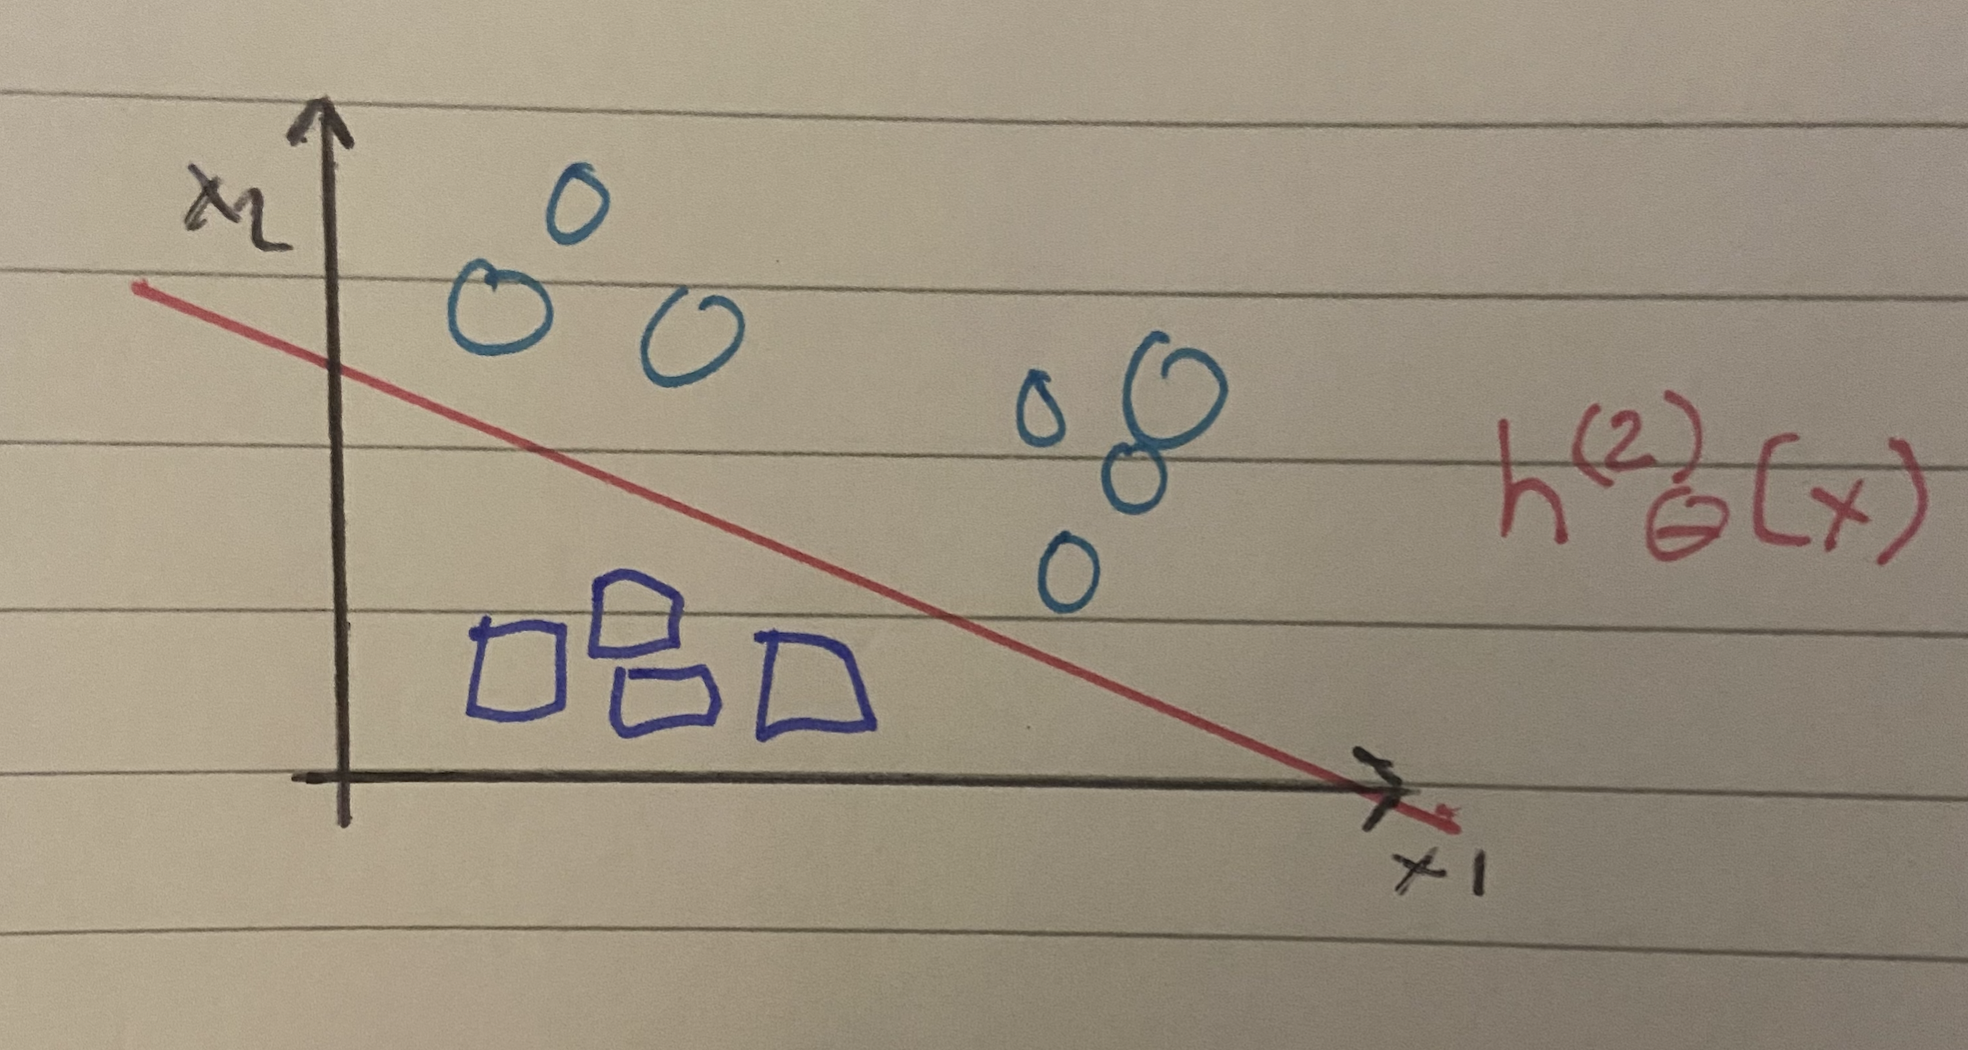 x2
h^(2)_θ(x)
x1